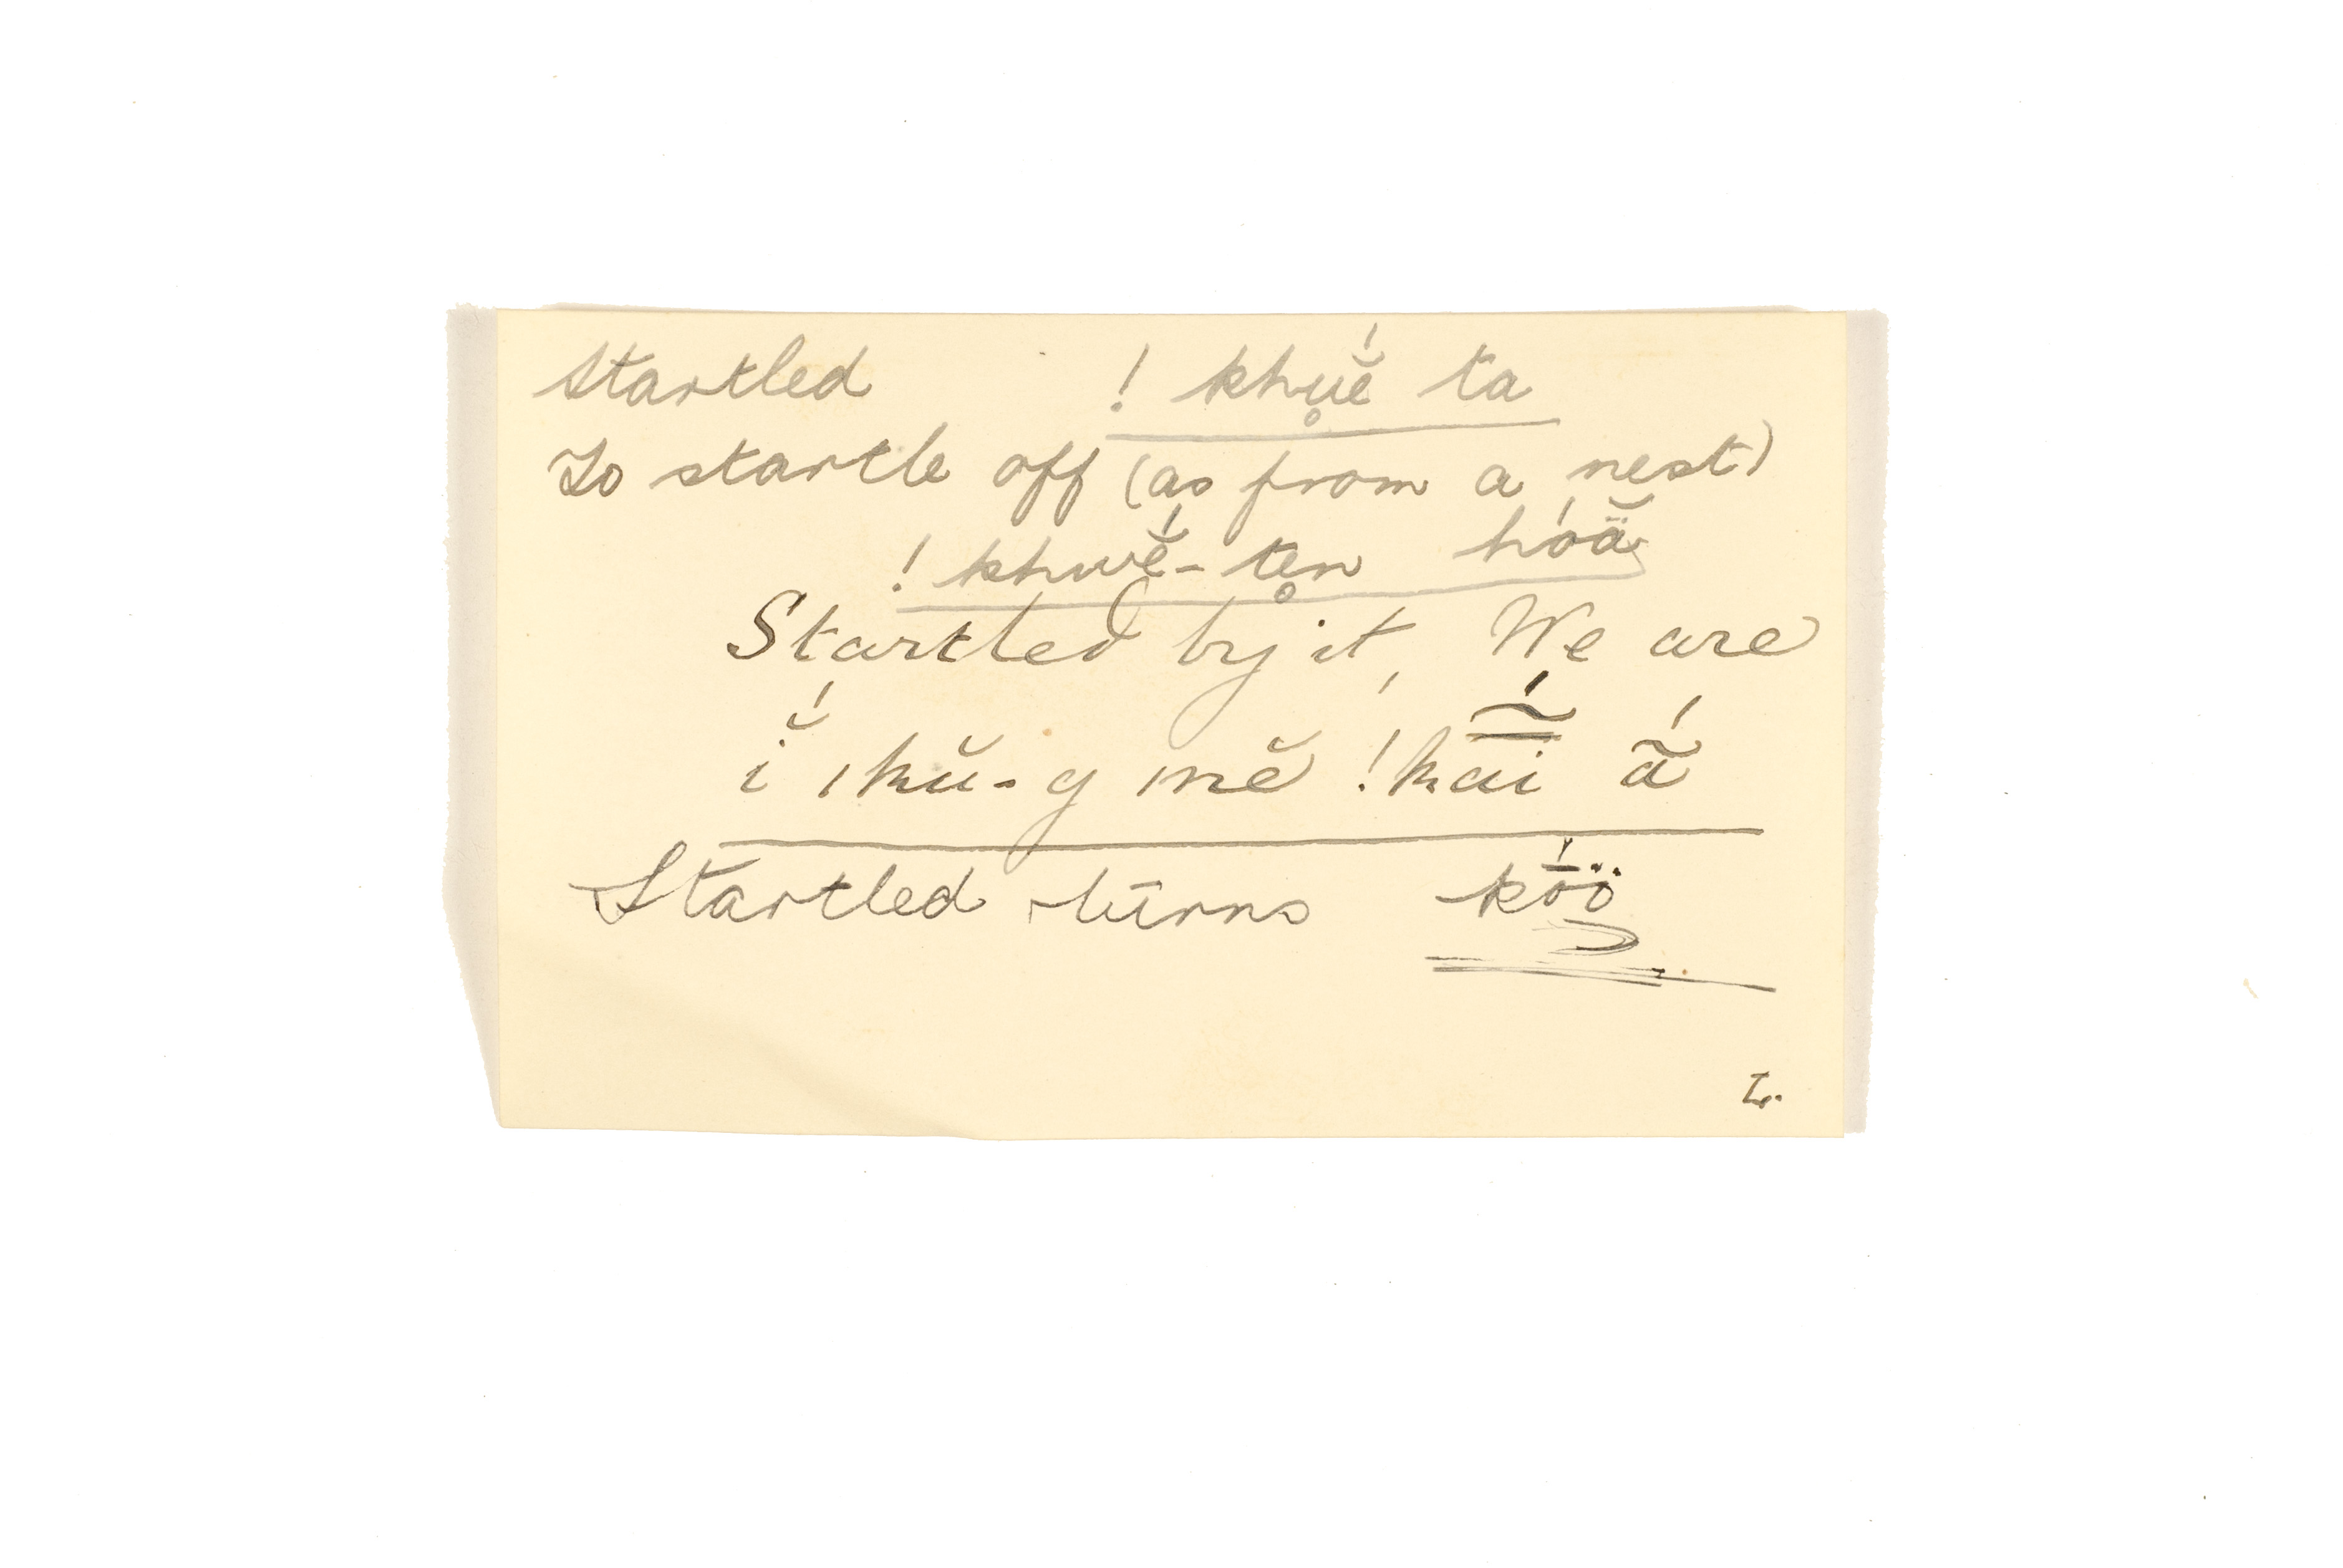 startled ! khuĕ́ ta
To startle off (as from a nest)
! khwĕ́-ten hóä̆
Startled by it, We are
ĭ́ ıkŭ-g nĕ !kai ã́
Startled turns kṓö
L.